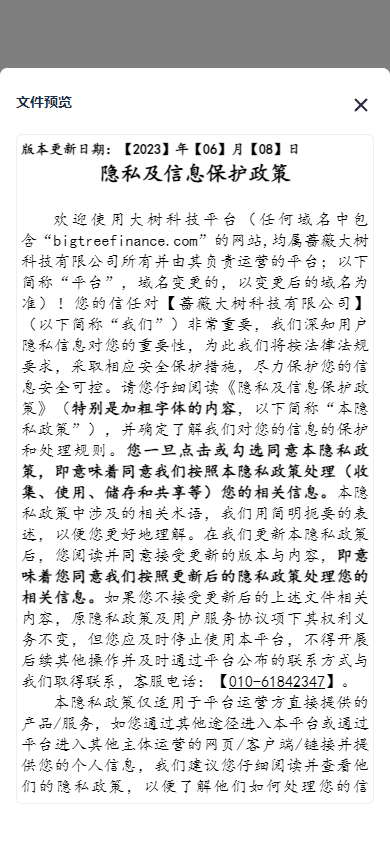 文件预览
版本更新日期：【2023】年【06】月【08】日
隐私及信息保护政策
欢迎使用大树科技平台（任何域名中包
含“bigtreefinance.com”的网站,均属蔷薇大树
科技有限公司所有并由其负责运营的平台；以下
简称“平台”，域名变更的，以变更后的域名为
准）！您的信任对【蔷薇大树科技有限公司】
（以下简称“我们”）非常重要，我们深知用户
隐私信息对您的重要性，为此我们将按法律法规
要求，采取相应安全保护措施，尽力保护您的信
息安全可控。请您仔细阅读《隐私及信息保护政
策》（特别是加粗字体的内容，以下简称“本隐
私政策”），并确定了解我们对您的信息的保护
和处理规则。您一旦点击或勾选同意本隐私政
策，即意味着同意我们按照本隐私政策处理（收
集、使用、储存和共享等）您的相关信息。本隐
私政策中涉及的相关术语，我们用简明扼要的表
述，以便您更好地理解。在我们更新本隐私政策
后，您阅读并同意接受更新的版本与内容，即意
味着您同意我们按照更新后的隐私政策处理您的
相关信息。如果您不接受更新后的上述文件相关
内容，原隐私政策及用户服务协议项下其权利义
务不变，但您应及时停止使用本平台，不得开展
后续其他操作并及时通过平台公布的联系方式与
我们取得联系，客服电话：【010-61842347】。
本隐私政策仅适用于平台运营方直接提供的
产品/服务，如您通过其他途径进入本平台或通过
平台进入其他主体运营的网页/客户端/链接并提
供您的个人信息，我们建议您仔细阅读并查看他
们的隐私政策，以便了解他们如何处理您的信